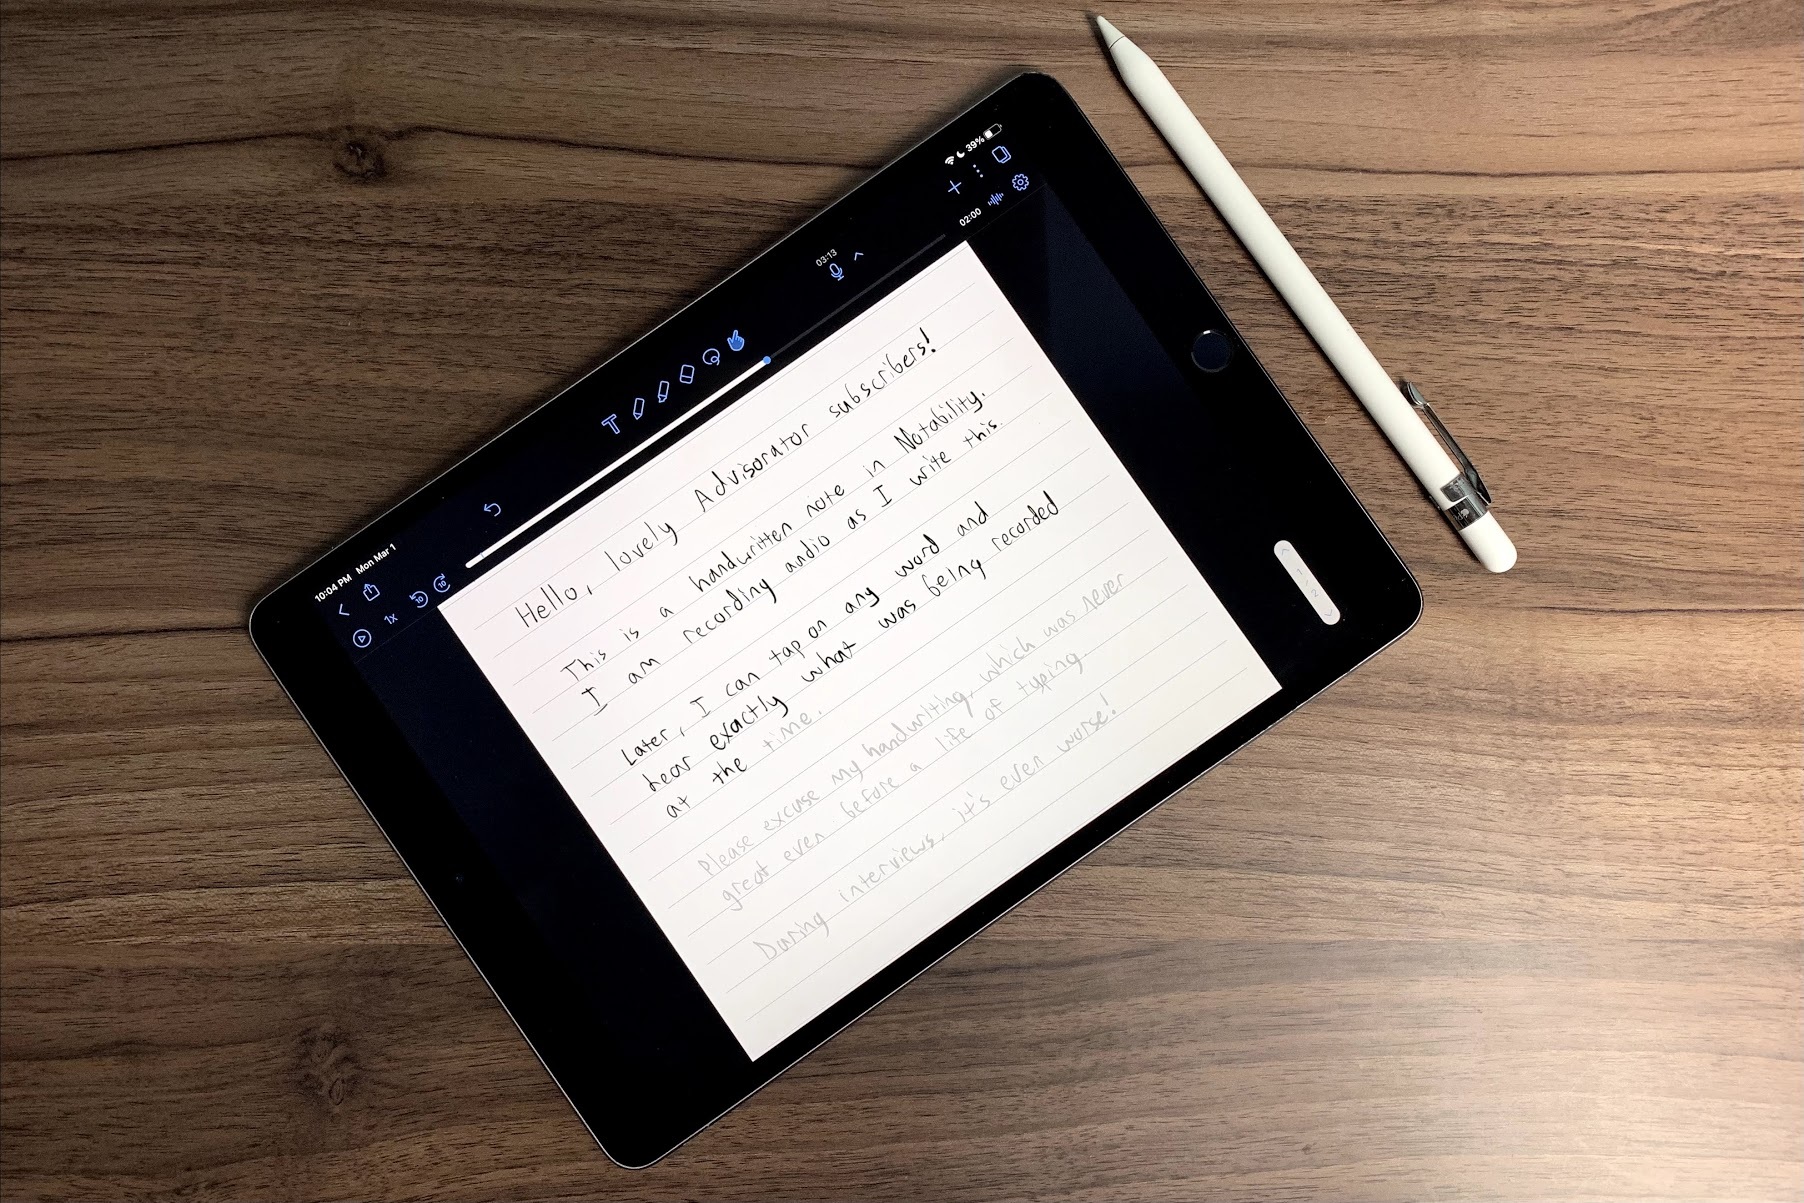 10:04 PM Mon Mar 1
39%
03:13
1x
10
10
02:00
Hello, lovely Advisorator subscribers!
This is a handwritten note in Notability.
I am recording audio as I write this.
Later, I can tap on any word and
hear exactly what was being recorded
at the time.
Please excuse my handwriting, which was never
great even before a life of typing.
During interviews, it's even worse!